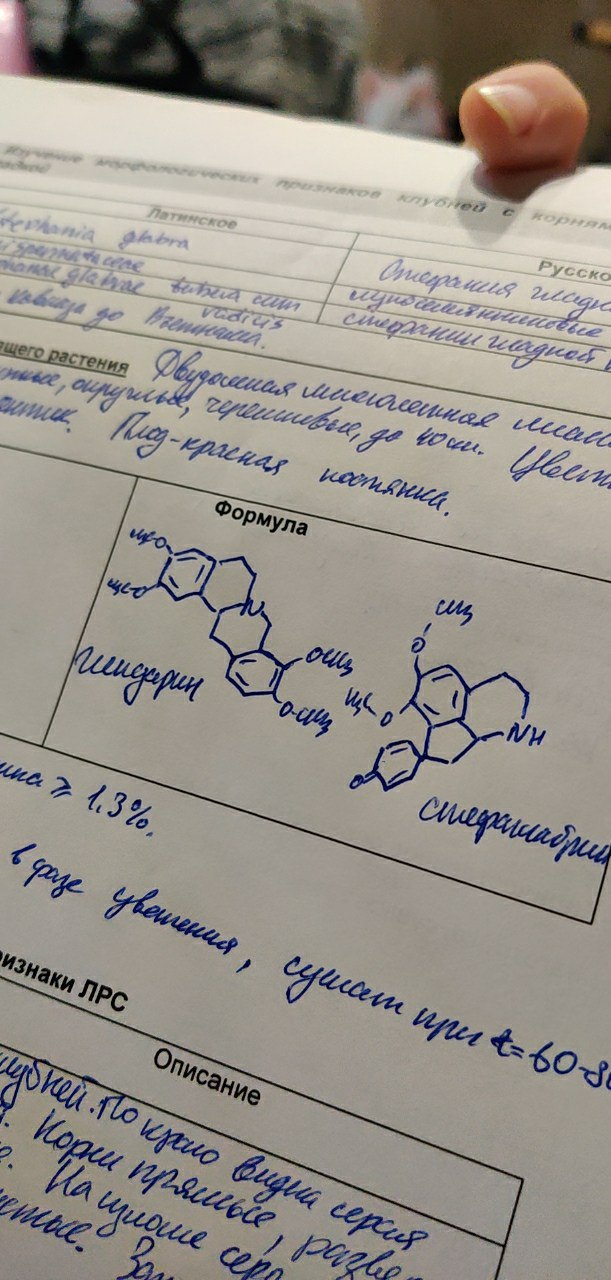 Изучение морфологических признаков клубней с корнями
Латинское
Русско
Stephania glabra
Стефания гладк
Menispermaceae
луносемянниковые
Stephaniae glabrae tubera cum radicis
стефании гладкой к
Кавказа до Вьетнама.
ащего растения Двудомная многолетняя лиана
округлые, черешковые, до 40см. Цвет
Плод-красная костянка.
Формула
H₃CO
H₃CO
N
OCH₃
O-CH₃
Гиндарин
CH₃
O
H₃C
O
NH
O
Стефаглабрин
≥ 1.3%.
в фазе цветения, сушат при t=60-80
ризнаки ЛРС
Описание
клубней. По краю видна серая
Корни прямые, разве
На изломе серо